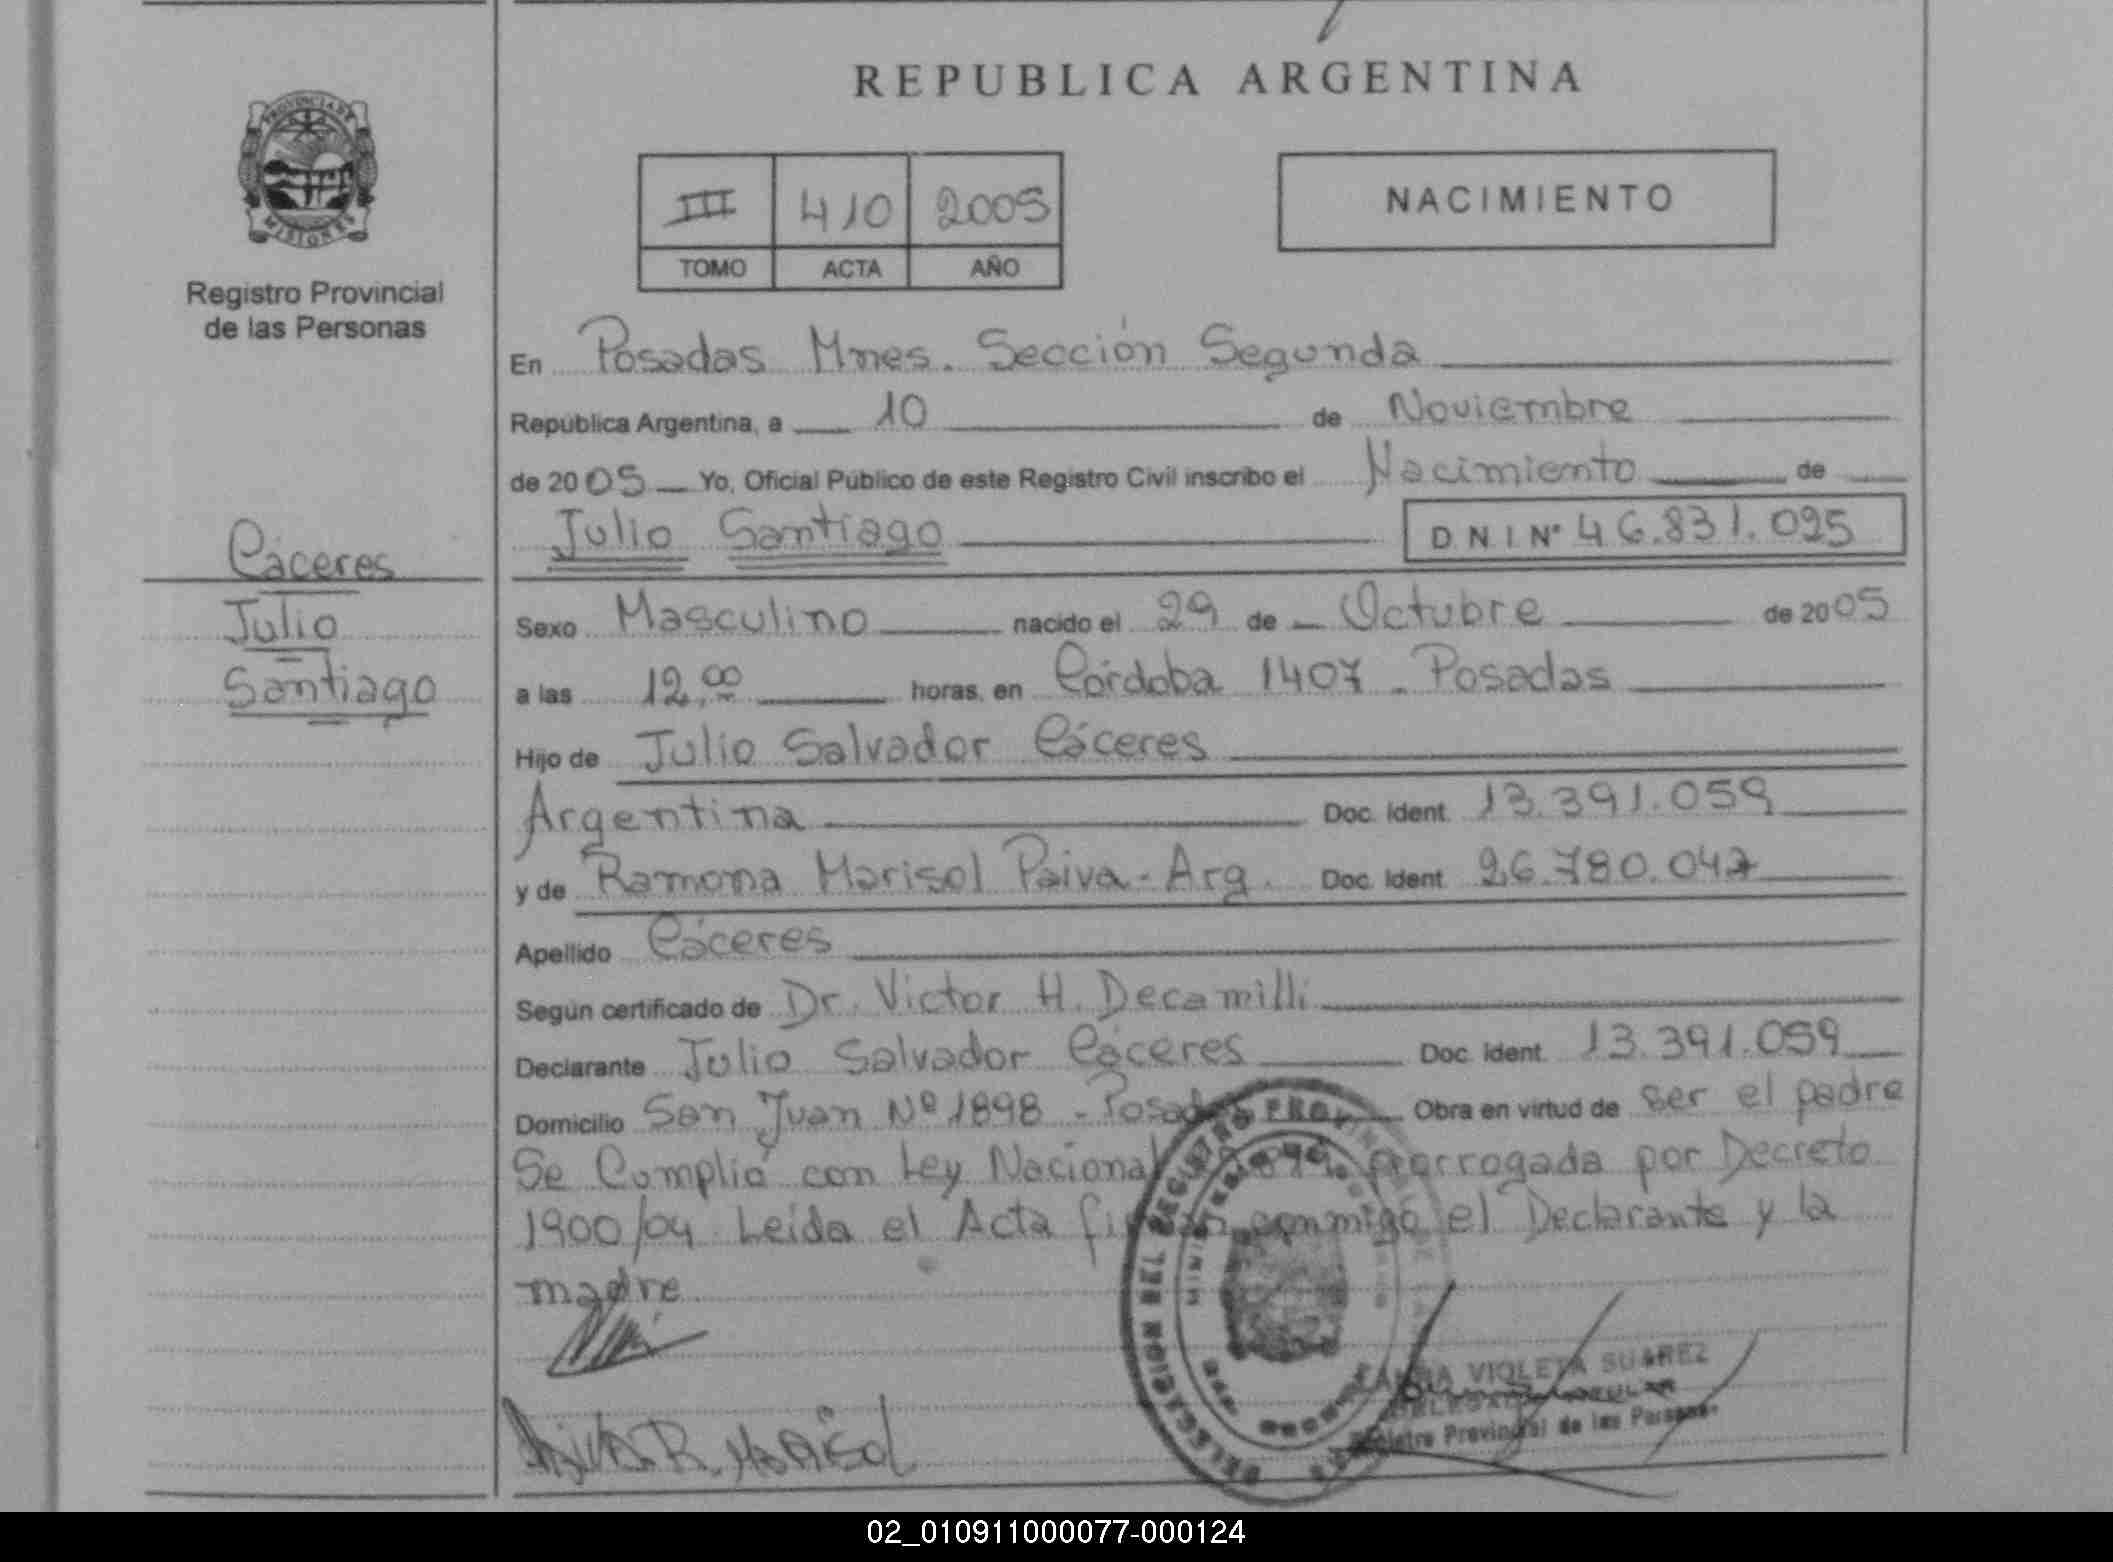 REPUBLICA ARGENTINA
PROVINCIA DE
MISIONES
Registro Provincial
de las Personas
III 410 2005
TOMO ACTA AÑO
NACIMIENTO
En Posadas Mnes. Sección Segunda
República Argentina, a 10 de Noviembre
de 2005 Yo, Oficial Público de este Registro Civil inscribo el Nacimiento de
Julio Santiago D N I Nº 46.831.025
Cáceres
Julio
Santiago
Sexo Masculino nacido el 29 de Octubre de 2005
a las 12,00 horas, en Córdoba 1407 - Posadas
Hijo de Julio Salvador Cáceres
Argentina Doc. Ident. 13.391.059
y de Ramona Marisol Paiva - Arg. Doc. Ident. 26.780.047
Apellido Cáceres
Según certificado de Dr. Victor H. Decamilli
Declarante Julio Salvador Cáceres Doc. Ident. 13.391.059
Domicilio San Juan Nº 1898 - Posadas Obra en virtud de ser el padre
Se Cumplió con Ley Nacional prorrogada por Decreto
1900/04 Leída el Acta firman conmigo el Declarante y la
madre
PAIVA R. MARISOL
VIOLETA SUAREZ
DELEGADA TITULAR
Registro Provincial de las Personas
02_010911000077-000124